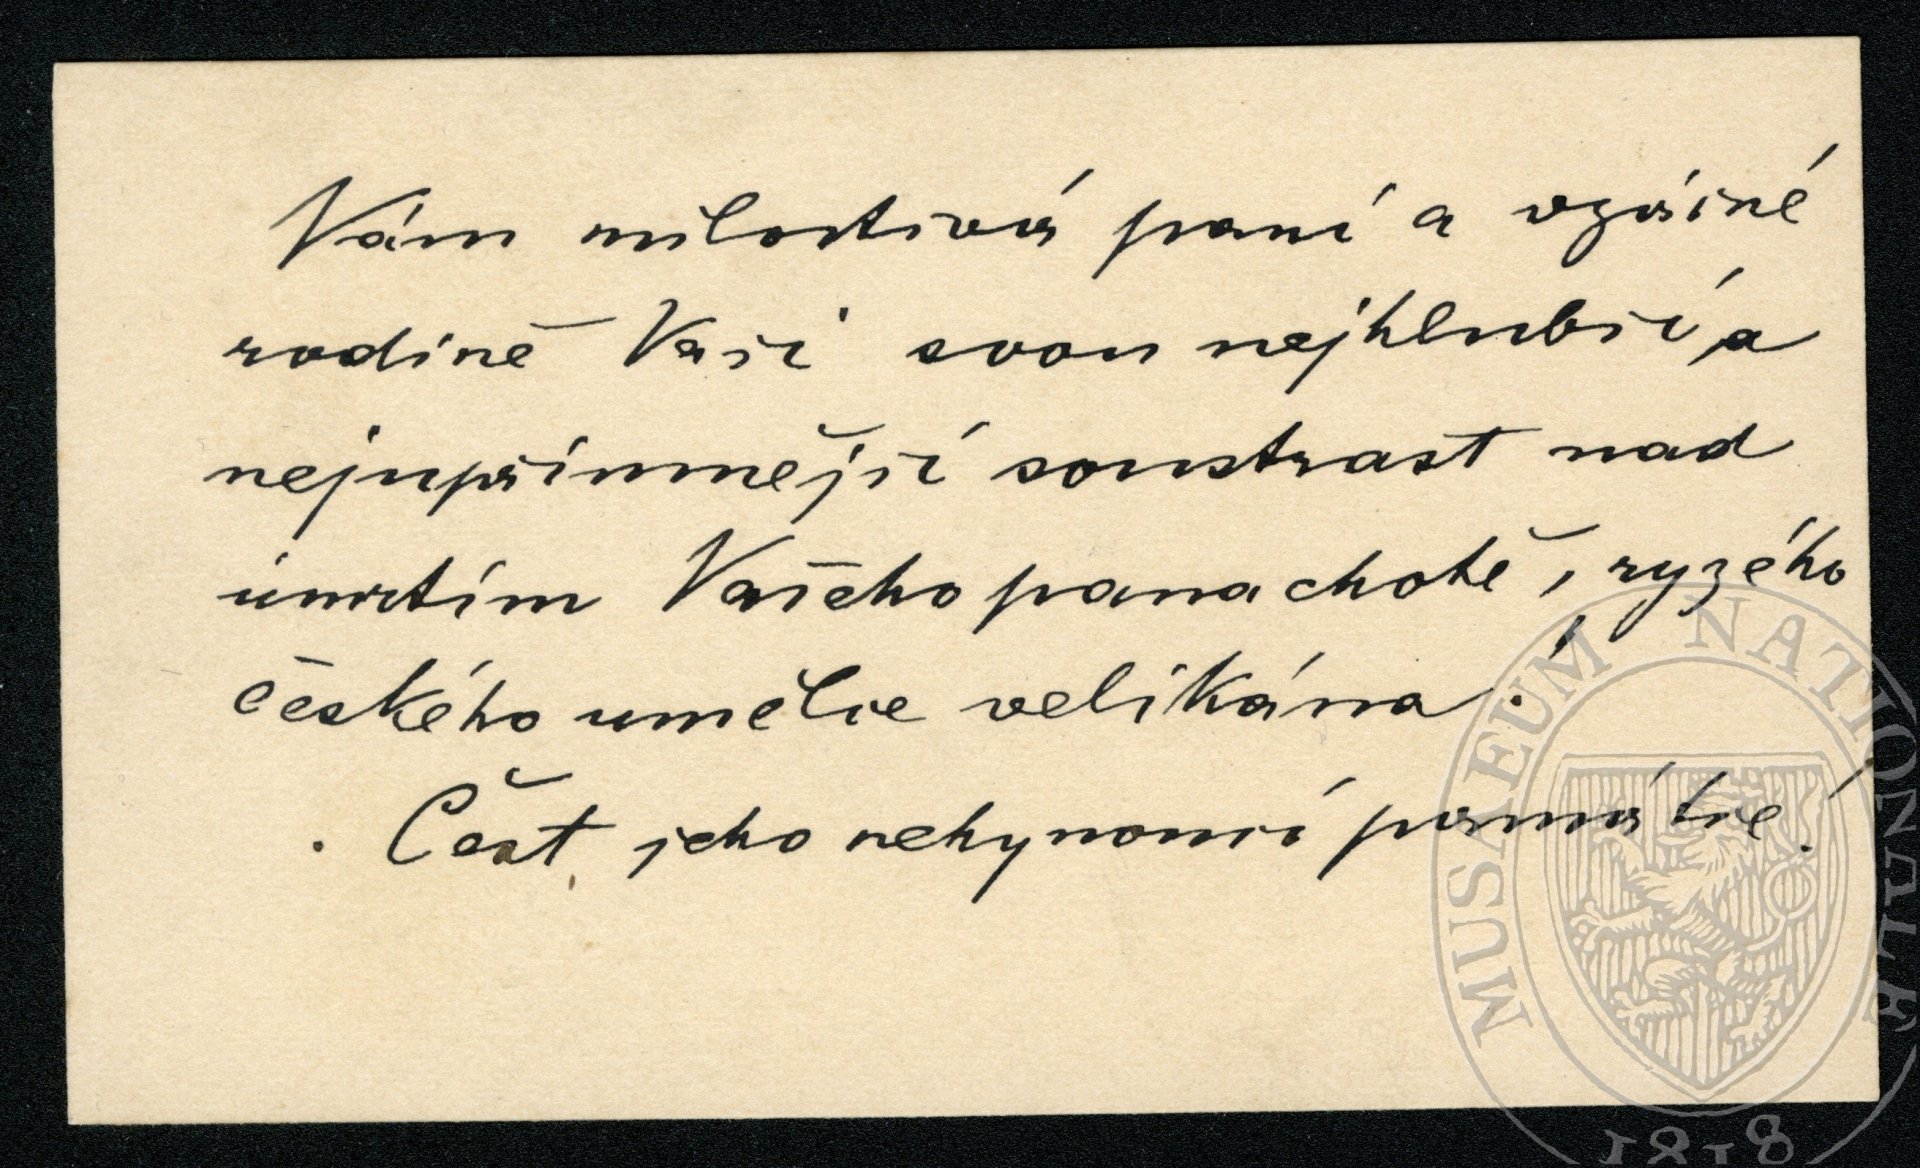 Vám milostivá paní a vzácné
rodině Vaší svou nejhlubší a
nejupřímnější soustrast nad
úmrtím Vašeho pana chotě, ryzého
českého umělce velikána!
Čest jeho nehynoucí památce!
MUSAEUM NATIONALE
1818